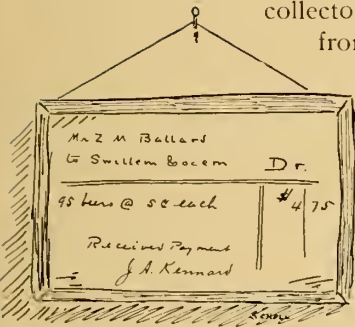 collecto
from
Mr Z M Ballard
to Swillem & Socem Dr.
95 beers @ 5¢ each $4 75
Received Payment
J. A. Kennard